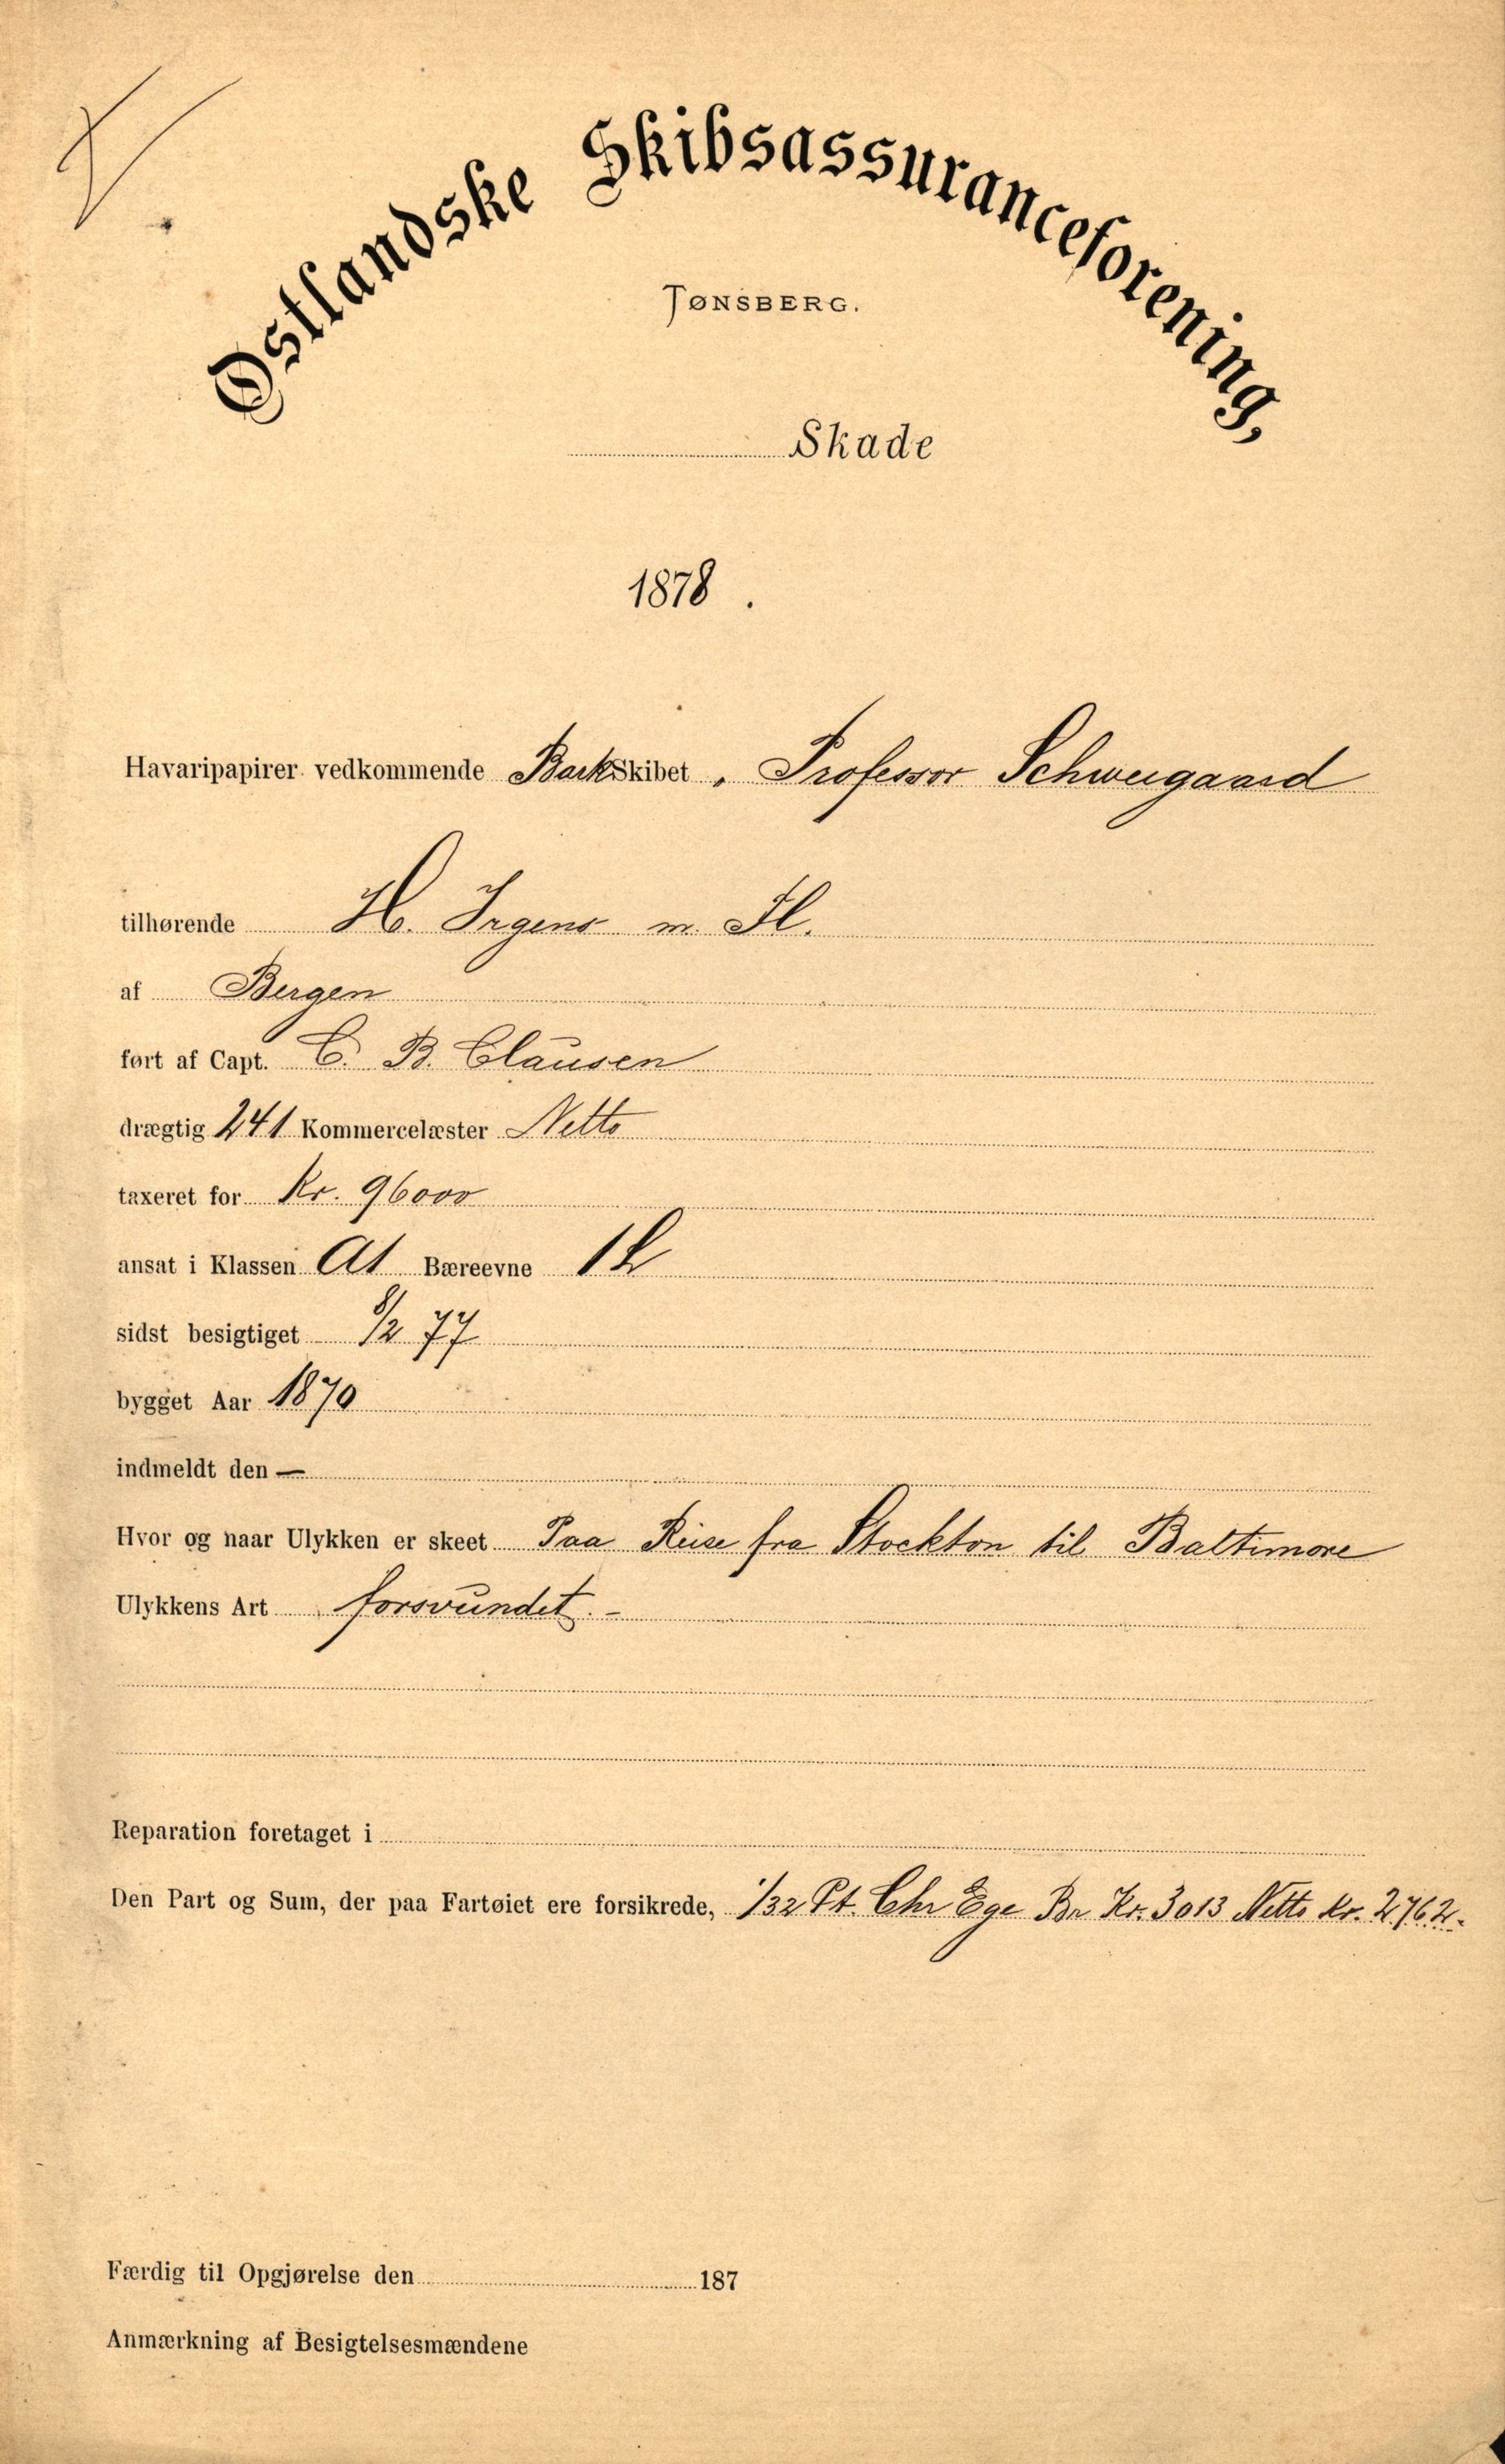 Østlandske Skibsassuranceforening,
TØNSBERG.
Skade
1878.
Havaripapirer vedkommende Barkskibet „ Professor Schweigaard
tilhørende H. Irgens m. Fl.
af Bergen
ført af Capt. C. B. Clausen
drægtig 241 Kommercelæster Netto
taxeret for Kr. 96000
ansat i Klassen A1 Bæreevne
sidst besigtiget 8/2 77
bygget Aar 1870
indmeldt den —
Hvor og naar Ulykken er skeet Paa Reise fra Stockton til Baltimore
Ulykkens Art forsvundet. -
Reparation foretaget i
Den Part og Sum, der paa Fartøiet ere forsikrede, 1/32 Pt. Chr Ege Br Kr. 3013 Netto Kr. 2762.-
Færdig til Opgjørelse den 187
Anmærkning af Besigtelsesmændene